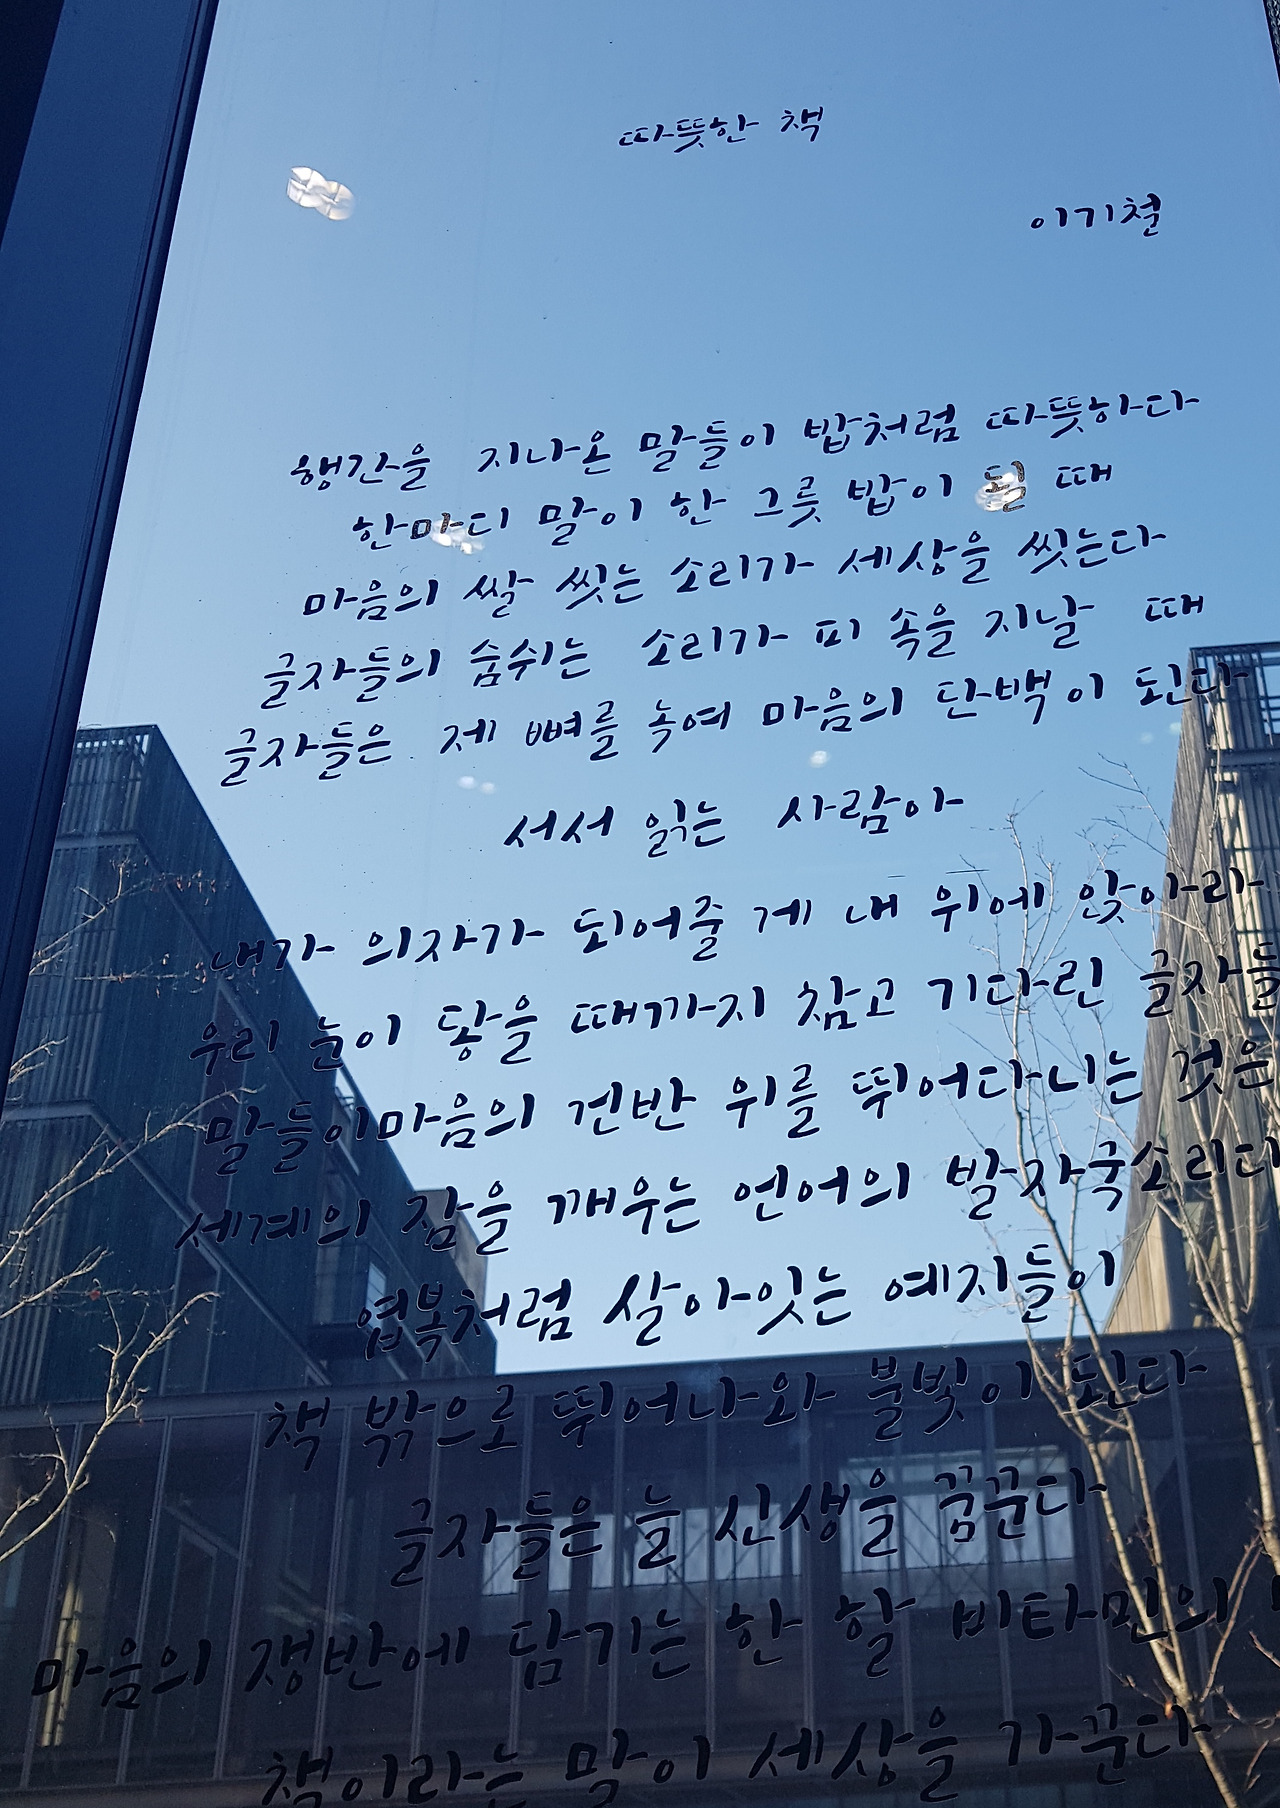 따뜻한 책
이기철
행간을 지나온 말들이 밥처럼 따뜻하다
한마디 말이 한 그릇 밥이 될 때
마음의 쌀 씻는 소리가 세상을 씻는다
글자들의 숨쉬는 소리가 피 속을 지날 때
글자들은 제 뼈를 녹여 마음의 단백이 된다
서서 읽는 사람아
내가 의자가 되어줄 게 내 위에 앉아라
우리 눈이 닿을 때까지 참고 기다린 글자들
말들이마음의 건반 위를 뛰어다니는 것은
세계의 잠을 깨우는 언어의 발자국소리다
엽록처럼 살아잇는 예지들이
책 밖으로 뛰어나와 불빛이 된다
글자들은 늘 신생을 꿈꾼다
마음의 쟁반에 담기는 한 알 비타민의
책이라는 말이 세상을 가꾼다